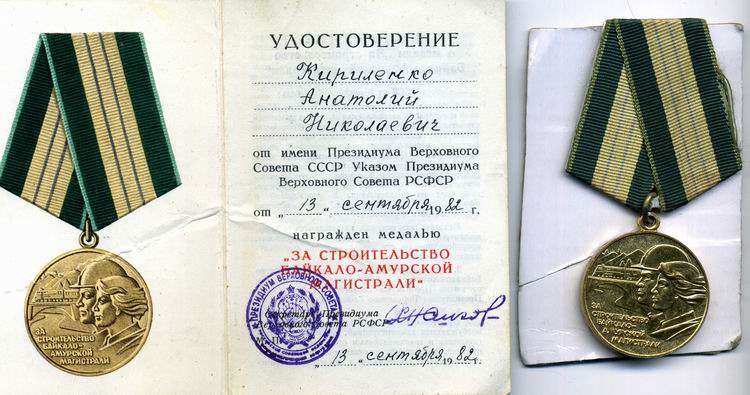 ЗА
СТРОИТЕЛЬСТВО
БАЙКАЛО-
АМУРСКОЙ
МАГИСТРАЛИ
УДОСТОВЕРЕНИЕ
Кириленко
Анатолий
Николаевич
от имени Президиума Верховного
Совета СССР Указом Президиума
Верховного Совета РСФСР
от „13“ сентября 1982 г.
награжден медалью
„ЗА СТРОИТЕЛЬСТВО
БАЙКАЛО-АМУРСКОЙ
МАГИСТРАЛИ“
ПРЕЗИДИУМ ВЕРХОВНОГО СОВЕТА
Секретарь Президиума
Верховного Совета РСФСР
„13“ сентября 1982 г.
ЗА
СТРОИТЕЛЬСТВО
БАЙКАЛО-
АМУРСКОЙ
МАГИСТРАЛИ